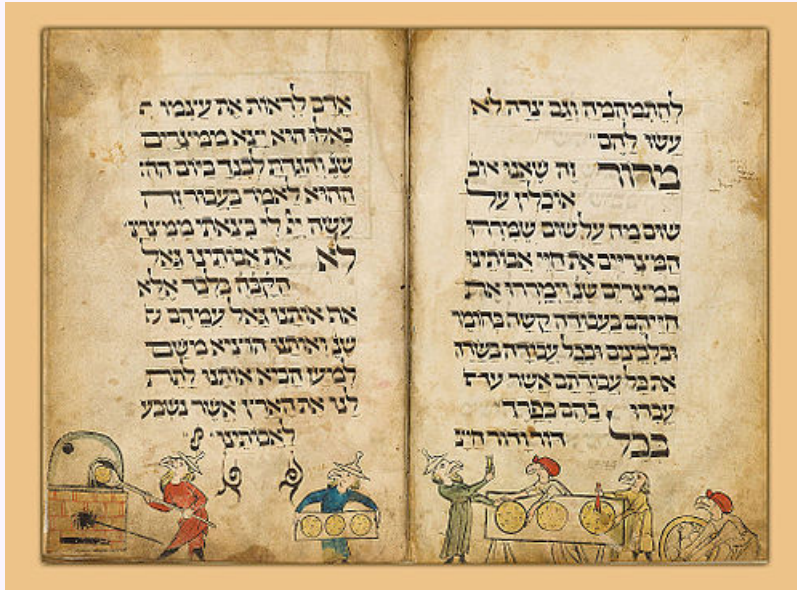 להתמהמה וגם צדה לא
עשו להם
מרור זה שאנו אוכ
אוכלין על
שום מה על שום שמררו
המצריים את חיי אבותינו
במצרים שנ׳ וימררו את
חייהם בעבודה קשה בחומר
ובלבנים ובכל עבודה בשדה
את כל עבודתם אשר
עבדו בהם בפרך
בכל דור ודור חייב
אדם לראות את עצמו
כאלו הוא יצא ממצרים
שנ׳ והגדת לבנך ביום הה
ההוא לאמר בעבור זה
עשה יי לי בצאתי ממצרים
לא את אבותינו גאל
הקבה בלבד אלא
את אותנו גאל עמהם
שנ׳ ואותנו הוציא משם
למען הביא אותנו לתת
לנו את הארץ אשר נשבע
לאבותינו